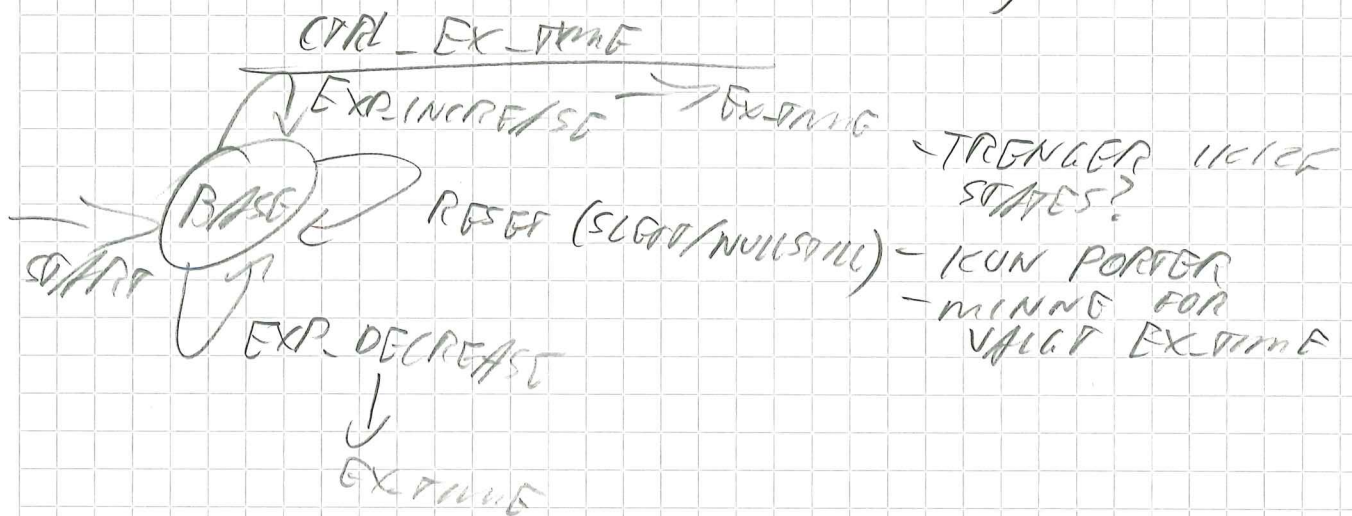 CTRL_EX_TIME
EXP_INCREASE → EX_TIME
BASE
START
RESET (SLETT/NULLSTILL)
EXP_DECREASE
EX_TIME
- TRENGER IKKE
STATES?
- KUN PORTER
- MINNE FOR
VALGT EX_TIME